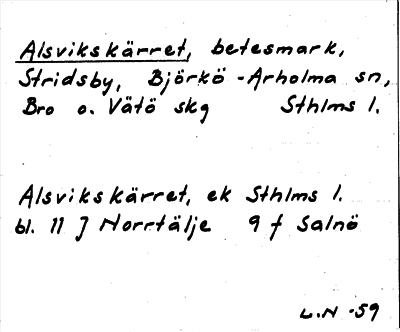 Alsvikskärret, betesmark,
Stridsby, Björkö-Arholma sn,
Bro o. Vätö skg Sthlms l.
Alsvikskärret, ek Sthlms l.
bl. 11 J Norrtälje 9 f Salnö
L.N -59